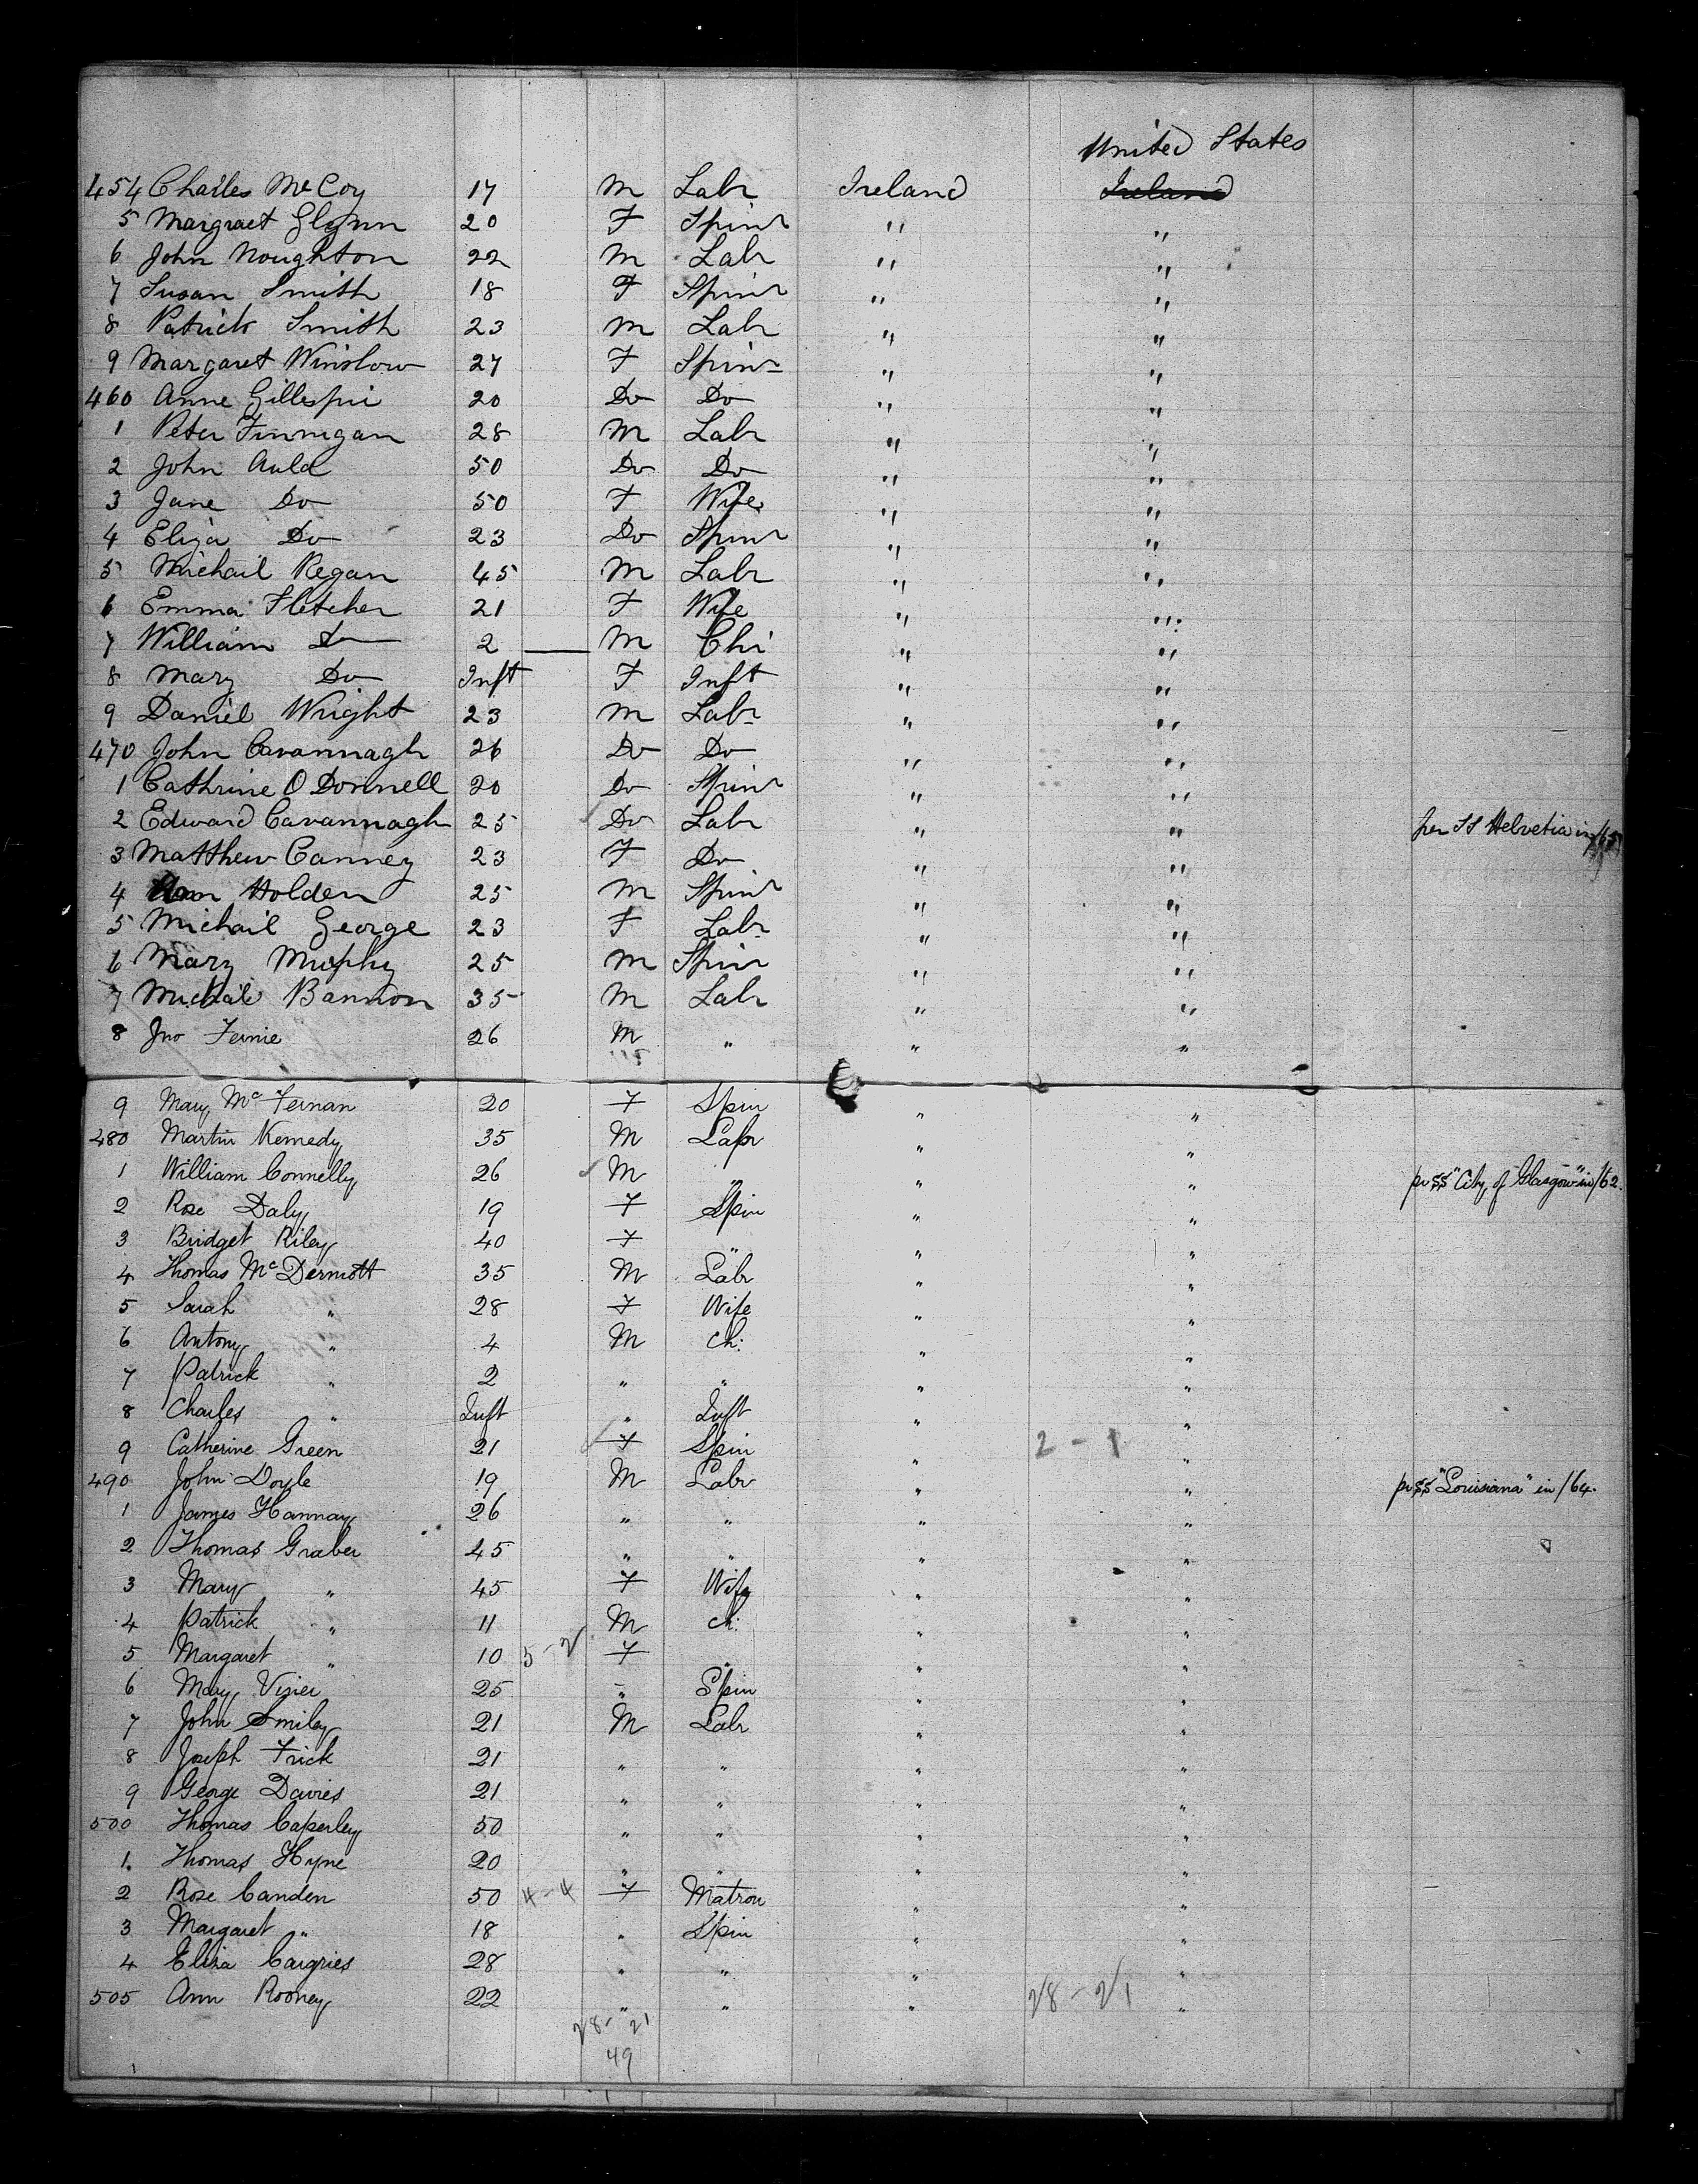 United States
454 Charles McCoy 17 M Labr Ireland Ireland
5 Margraet Glynn 20 F Spinr " "
6 John Noughton 22 M Labr " "
7 Susan Smith 18 F Spinr " "
8 Patrick Smith 23 M Labr " "
9 Margaret Winslow 27 F Spinr " "
460 Anne Gillespie 20 Do Do " "
1 Peter Finnigan 28 M Labr " "
2 John Auld 50 Do Do " "
3 Jane Do 50 F Wife " "
4 Eliza Do 23 Do Spinr " "
5 Michail Regan 45 M Labr " "
6 Emma Fletcher 21 F Wife " "
7 William Do 2 M Chi " "
8 Mary Do Inft F Inft " "
9 Daniel Wright 23 M Labr " "
470 John Cavannagh 26 Do Do " "
1 Cathrine O Donnell 20 Do Spinr " "
2 Edward Cavannagh 25 Do Labr " " per SS Helvetia in
3 Matthew Canney 23 F Do " "
4 Holden 25 M Spinr " "
5 Michail George 23 F Labr " "
6 Mary Muphy 25 M Spinr " "
7 Michail Bannon 35 M Labr " "
8 Jno Fernie 26 M " " "
9 Mary McFernan 20 F Spin " "
480 Martin Kennedy 35 M Labr " "
1 William Connelly 26 M " " " pr SS "City of Glasgow" in /62.
2 Rose Daly 19 F Spin " "
3 Bridget Riley 40 F " " "
4 Thomas McDermott 35 M Labr " "
5 Sarah " 28 F Wife " "
6 Antony " 4 M Ch: " "
7 Patrick " 2 " " " "
8 Charles " Inft " Inft " "
9 Catherine Green 21 F Spin " 2 - 1 "
490 John Doyle 19 M Labr " " pr SS "Louisiana" in /64.
1 James Hannay 26 " " " "
2 Thomas Graber 45 " " " "
3 Mary " 45 F Wife " "
4 Patrick " 11 M Ch: " "
5 Margaret " 10 5-2 F " " "
6 Mary Visier 25 " Spin " "
7 John Smiley 21 M Labr " "
8 Joseph Frick 21 " " " "
9 George Davies 21 " " " "
500 Thomas Caperley 50 " " " "
1. Thomas Hyne 20 " " " "
2 Rose Canden 50 4-4 F Matron " "
3 Margaret " 18 " Spin " "
4 Eliza Cargries 28 " " " "
505 Ann Rooney 22 " " " 28-21 "
28-21
49